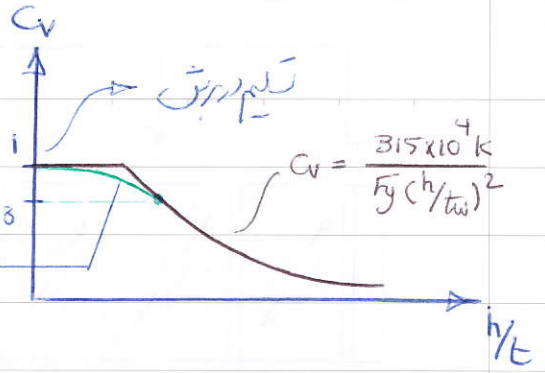 Cv
تسلیم در برش
1
Cv = 315x10⁴ k / Fy (h/tw)²
8
h/t